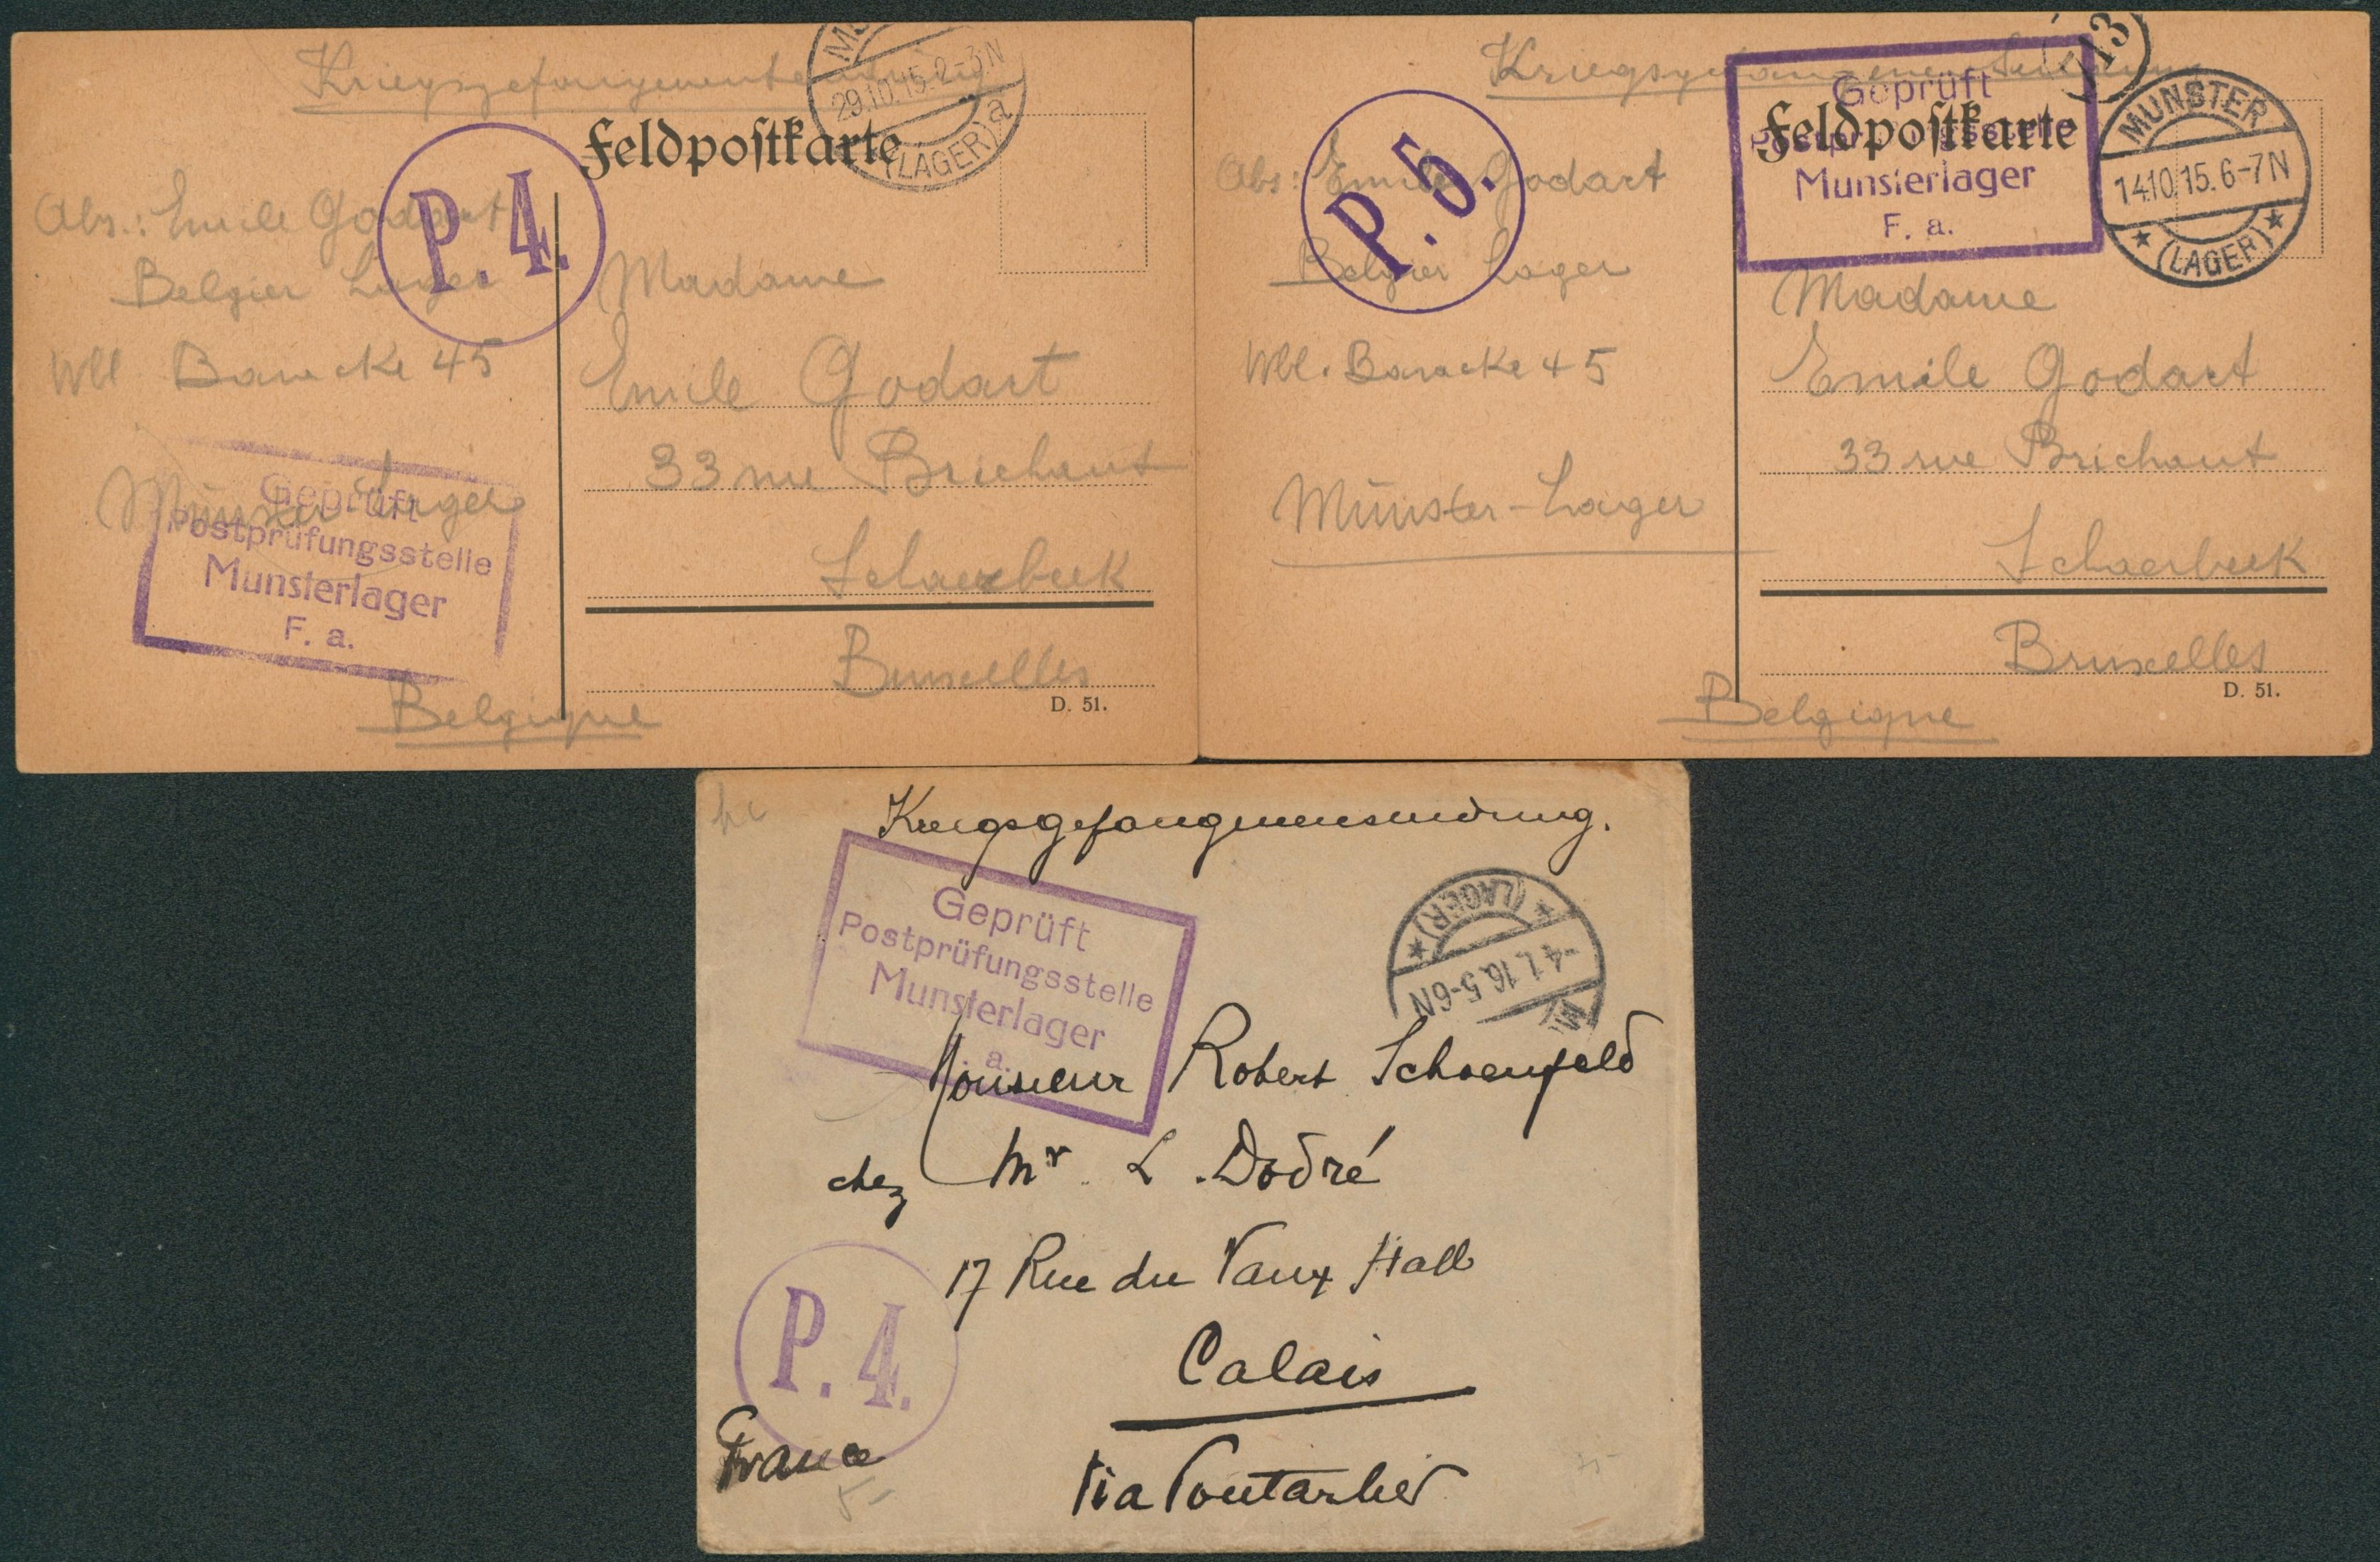 Kriegsgefangenensendung
MÜ
29.10.15.2-3N
(LAGER) a
Feldpostkarte
P. 4.
Abs.: Emile Godart
Belgier Lager
Wll Baracke 45
Münster Lager
Geprüft
Postprüfungsstelle
Munsterlager
F. a.
Madame
Emile Godart
33 rue Brichaut
Schaerbeek
Bruxelles
Belgique
D. 51.
Kriegsgefangenensendung
13
Geprüft
Postprüfungsstelle
Munsterlager
F. a.
Feldpostkarte
MUNSTER
14.10.15.6-7N
* (LAGER) *
P. 5.
Abs: Emile Godart
Belgier Lager
Wll. Baracke 45
Münster-Lager
Madame
Emile Godart
33 rue Brichaut
Schaerbeek
Bruxelles
Belgique
D. 51.
Kriegsgefangenensendung.
Geprüft
Postprüfungsstelle
Munsterlager
a.
MU
-4.1.16.5-6N
* (LAGER) *
Monsieur Robert Schoenfeld
chez Mr. L. Dodré
17 Rue du Vaux Hall
Calais
P. 4.
France
Via Pontarlier